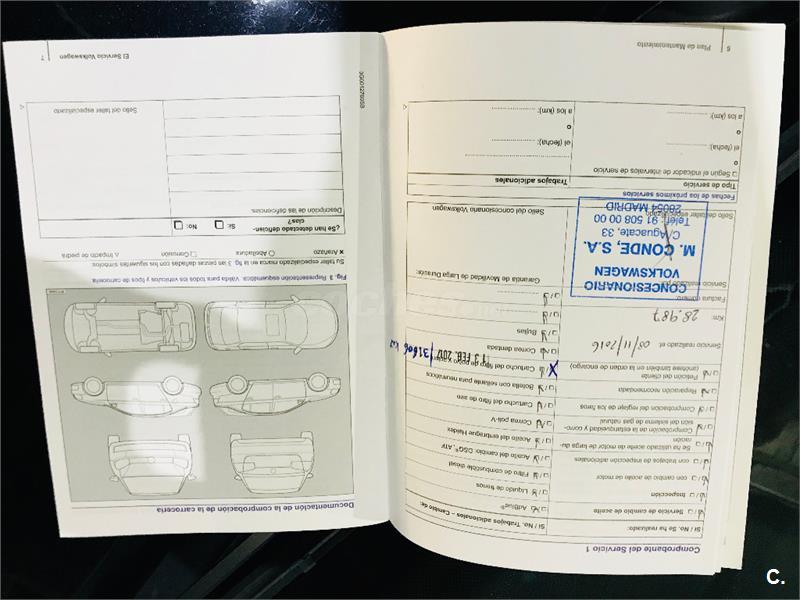 Plan de Mantenimiento
6
Comprobante del Servicio 1
SI / No. Se ha realizado:
Servicio de cambio de aceite
Inspección
con cambio de aceite de motor
con trabajos de inspección adicionales
Se ha utilizado aceite de motor de larga du-
ración
Comprobación de la estanqueidad y corro-
sión del sistema de gas natural
Comprobación del reglaje de los faros
Reparación recomendada
Petición del cliente
(anótese también en la orden de encargo)
Servicio realizado el: 08/11/2016
Km: 28.987
Factura número:
Servicio realizado por
Sello del taller especializado
CONCESIONARIO
VOLKSWAGEN
M. CONDE, S.A.
C/Aguacate, 33
Teléf.: 91 508 00 00
28054 MADRID
SI / No. Trabajos adicionales – Cambio de:
AdBlue®
Líquido de frenos
Filtro de combustible diésel
Aceite del cambio DSG®, ATF
Aceite del embrague Haldex
Correa poli-V
Cartucho del filtro de aire
Botella con sellante para neumáticos
X
Cartucho del filtro de polvo y polen
13 FEB. 2017
31806 km
Correa dentada
Bujías
Garantía de Movilidad de Larga Duración:
Sello del concesionario Volkswagen
Fechas de los próximos servicios
Tipo de servicio
Trabajos adicionales
Según el indicador de intervalos de servicio
o
el (fecha):
o
a los (km):
el (fecha):
o
a los (km):
El Servicio Volkswagen
7
Documentación de la comprobación de la carrocería
Fig. 3 Representación esquemática. Válida: para todos los vehículos y tipos de carrocería
Su taller especializado marca en la fig. 3 las piezas dañadas con los siguientes símbolos:
× Arañazo
O Abolladura
□ Corrosión
△ Impacto de piedra
¿Se han detectado deficien-
cias?
Sí:
No:
Descripción de las deficiencias:
Sello del taller especializado
C.